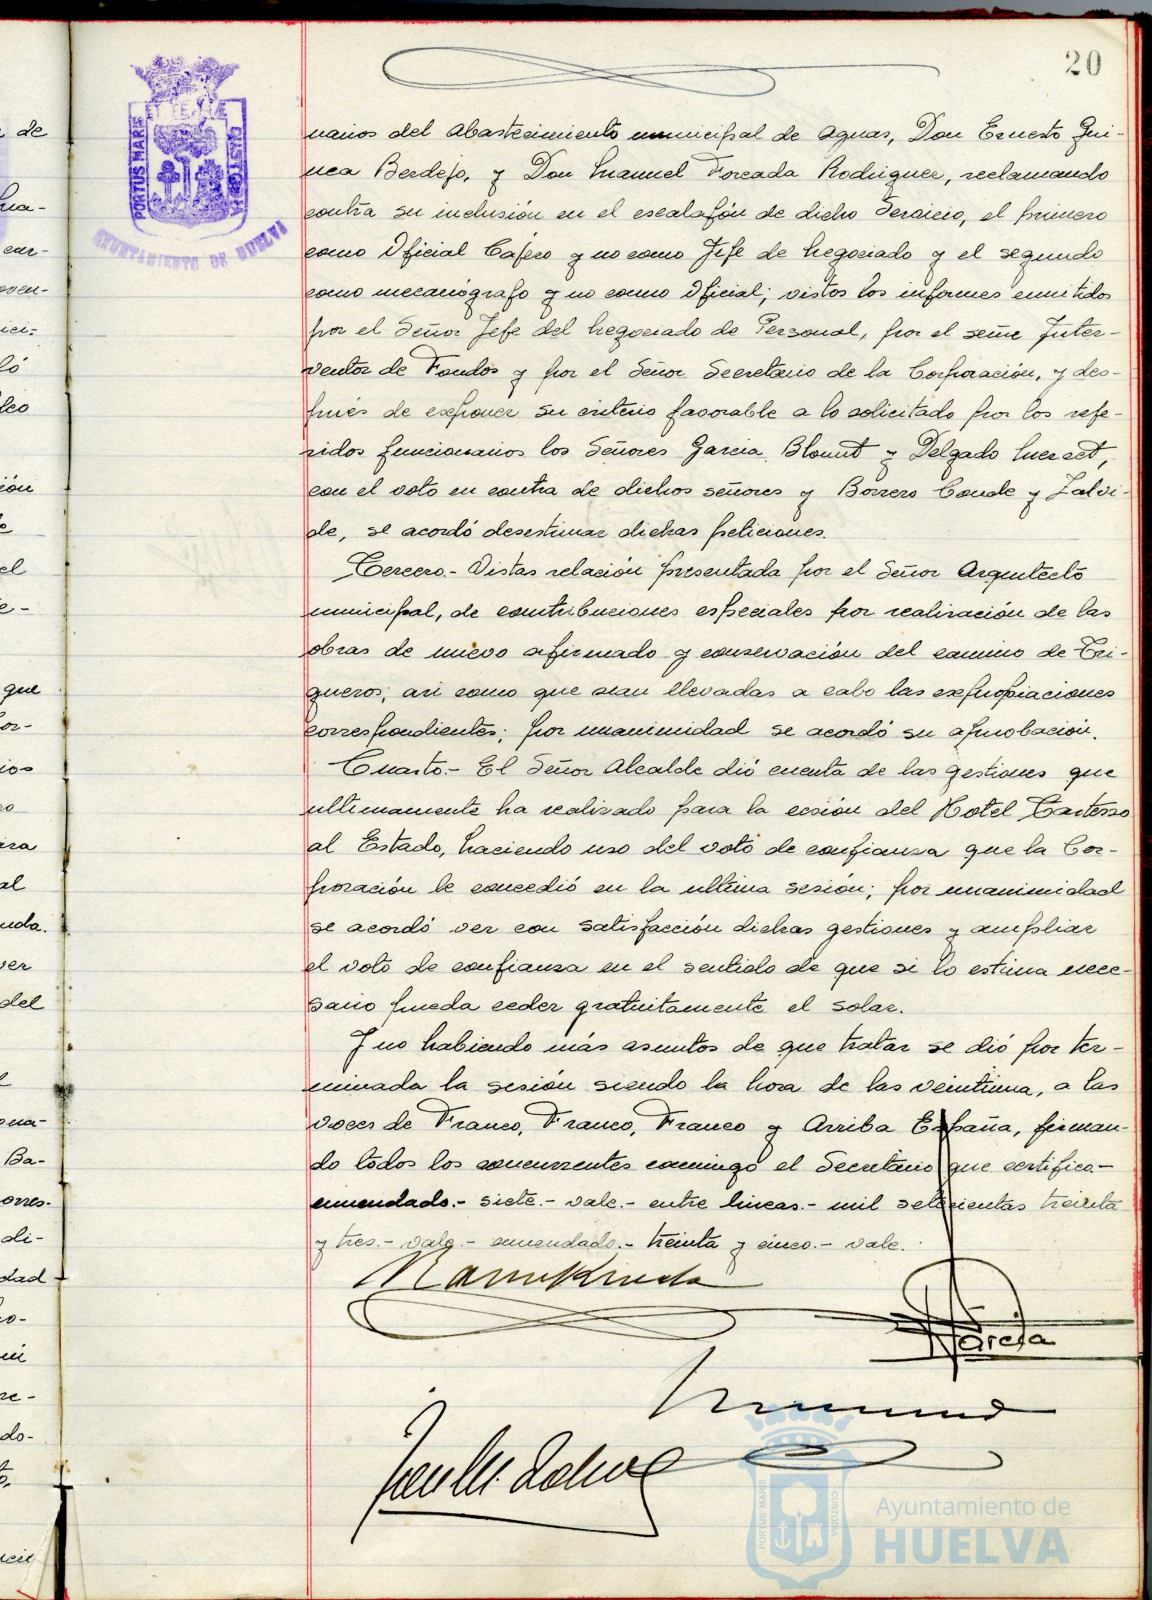 20
narios del abastecimiento municipal de aguas, Don Ernesto Qui-
nea Berdejo, y Don Manuel Forcada Rodriguez, reclamando
contra su inclusión en el escalafón de dicho Servicio, el primero
como Oficial Cajero y no como Jefe de Negociado y el segundo
como mecanógrafo y no como Oficial; vistos los informes emitidos
por el Señor Jefe del Negociado de Personal, por el señor Inter-
ventor de Fondos y por el Señor Secretario de la Corporación, y des-
pués de exponer su criterio favorable a lo solicitado por los refe-
ridos funcionarios los Señores Garcia, y Delgado
con el voto en contra de dichos señores y Borrero Conde y Zalvi-
de, se acordó desestimar dichas peticiones.
Tercero.- Vistas relación presentada por el Señor Arquitecto
municipal, de contribuciones especiales por realización de las
obras de nuevo afirmado y conservación del camino de Tri-
gueros; asi como que sean llevadas a cabo las expropiaciones
correspondientes; por unanimidad se acordó su aprobación.
Cuarto.- El Señor Alcalde dió cuenta de las gestiones que
ultimamente ha realizado para la cesión del Hotel Tartesso
al Estado, haciendo uso del voto de confianza que la Cor-
poración le concedió en la ultima sesión; por unanimidad
se acordó ver con satisfacción dichas gestiones y ampliar
el voto de confianza en el sentido de que si lo estima nece-
sario pueda ceder gratuitamente el solar.
Y no habiendo más asuntos de que tratar se dió por ter-
minada la sesión siendo la hora de las veintiuna, a las
voces de Franco, Franco, Franco y Arriba España, firman-
do todos los concurrentes conmigo el Secretario que certifico.-
enmendado.- siete.- vale.- entre lineas.- mil setecientas treinta
y tres.- vale.- enmendado.- treinta y cinco.- vale.
Garcia
PORTUS MARIS
CUSTODIA
AYUNTAMIENTO DE HUELVA
Ayuntamiento de
HUELVA